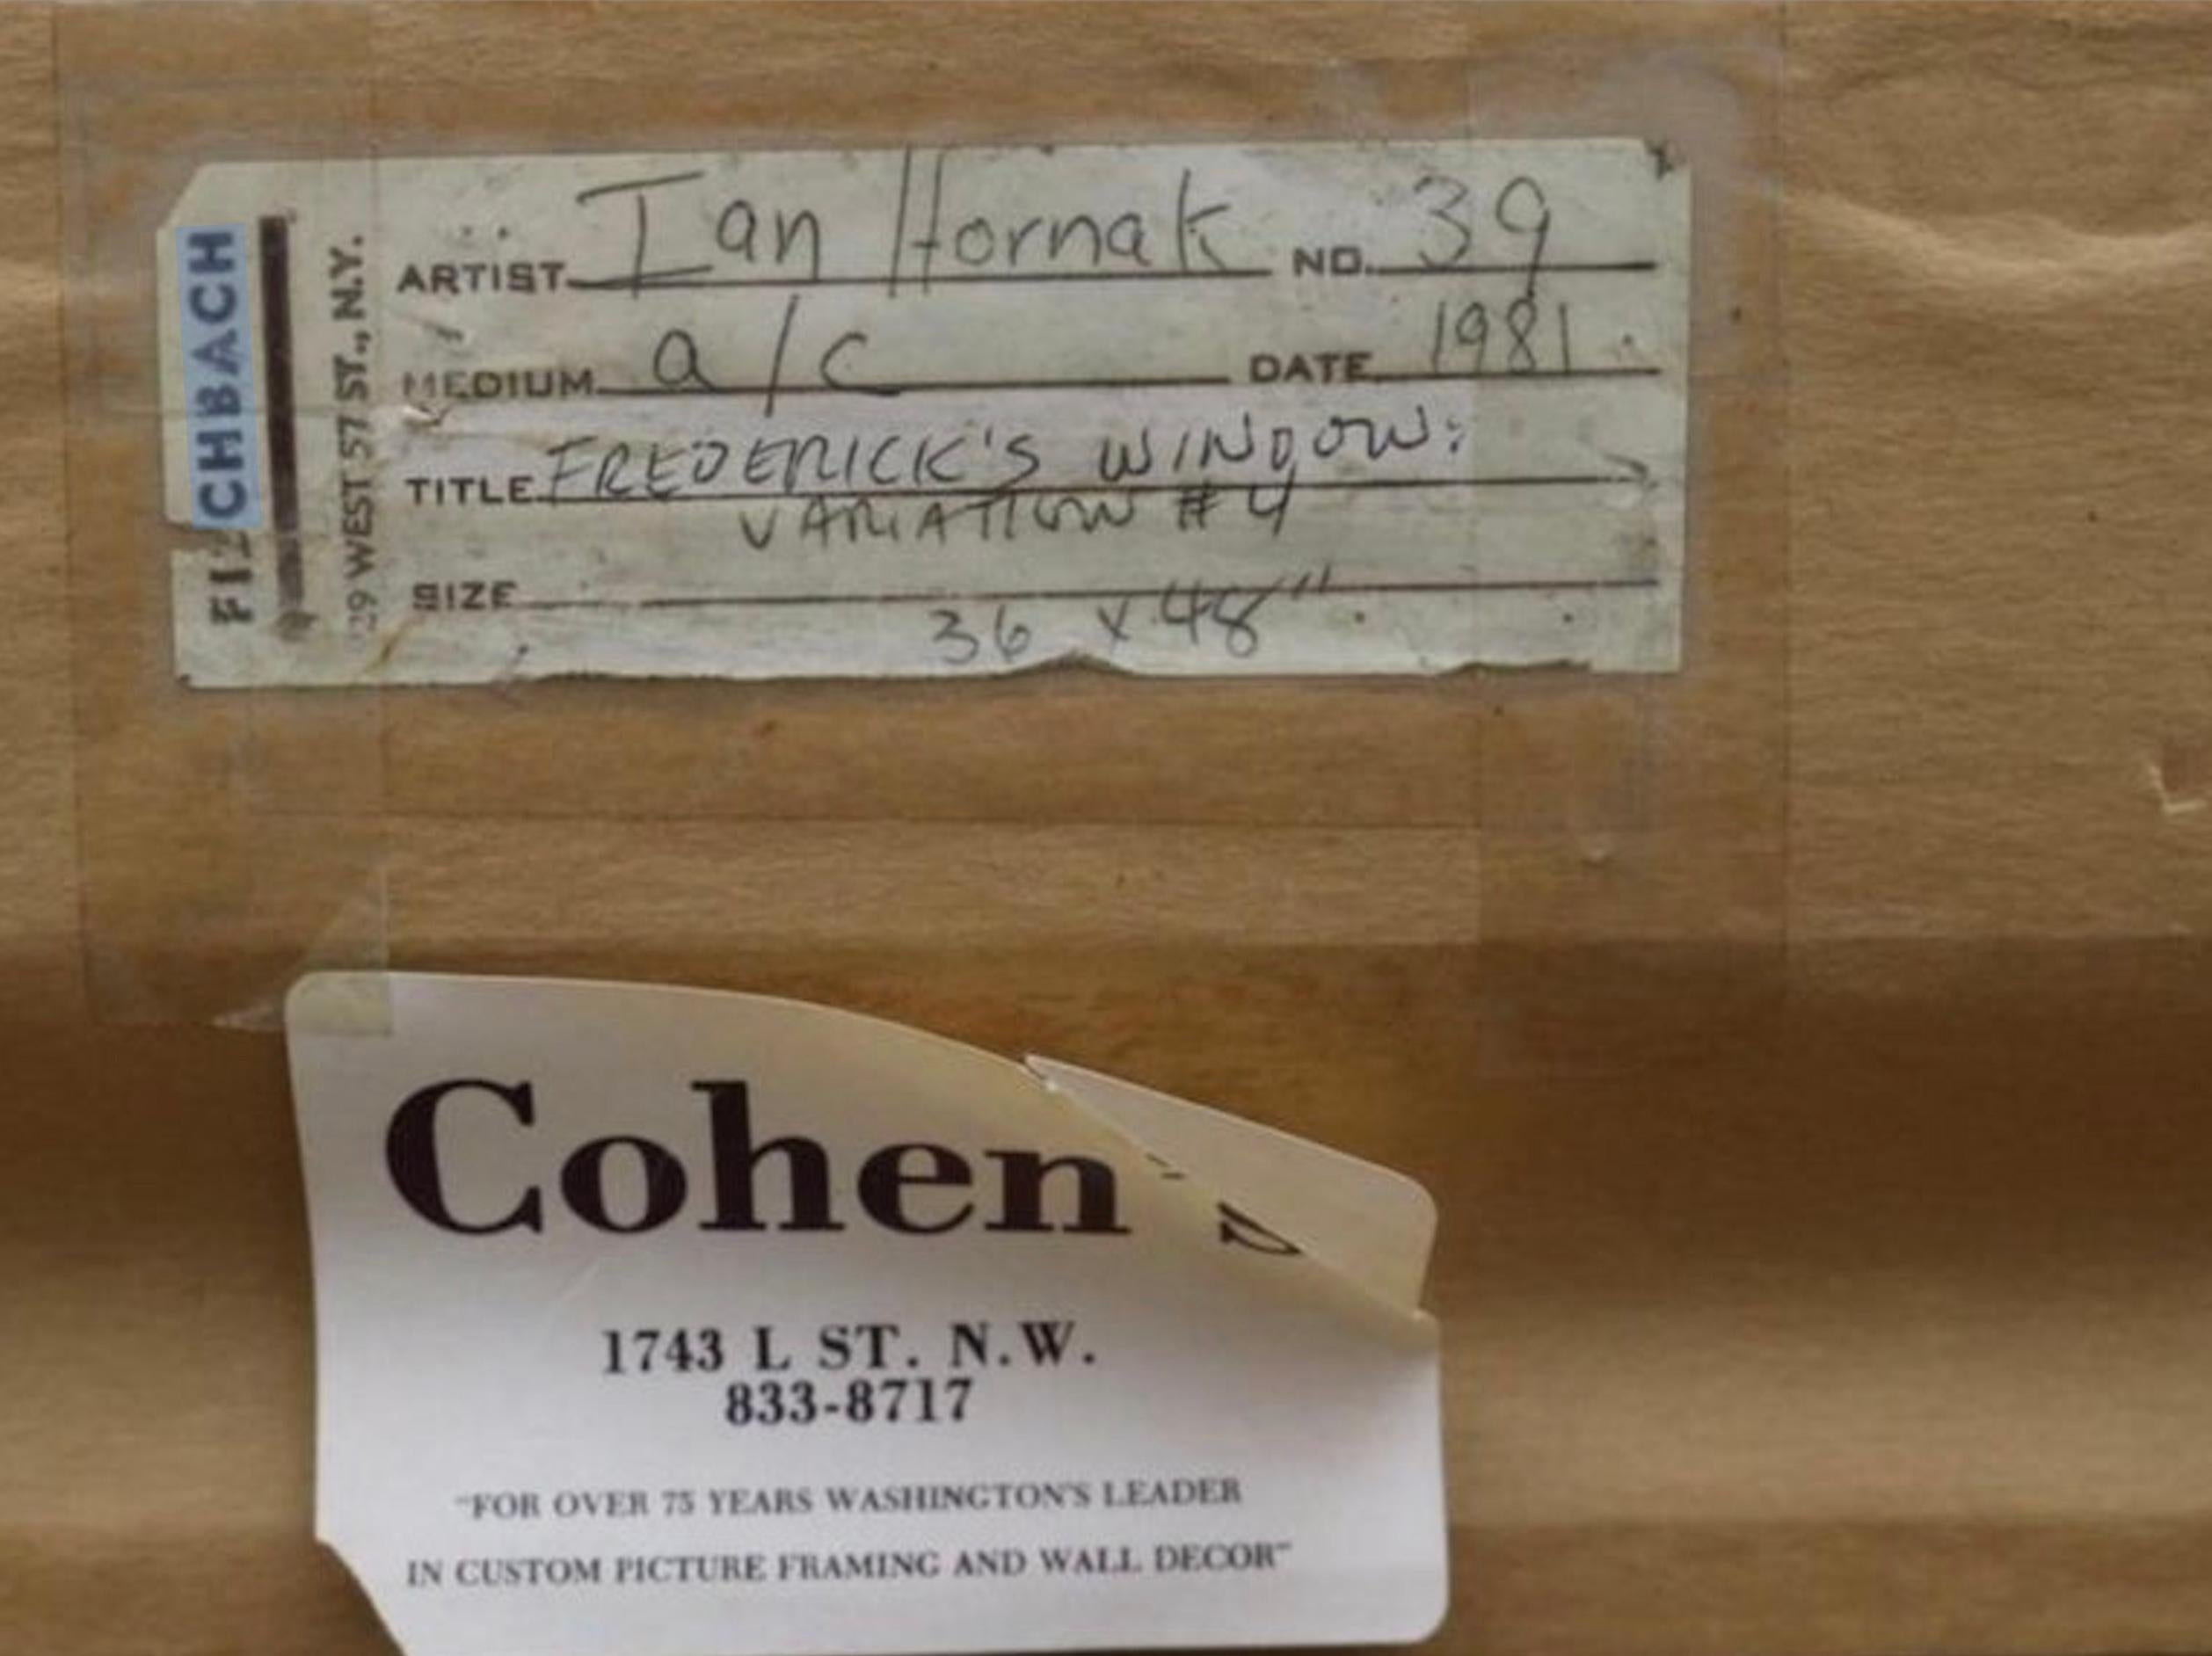 FI CHBACH
29 WEST 57 ST., N.Y.
ARTIST Ian Hornak NO. 39
MEDIUM a/c DATE 1981
TITLE FREDERICK'S WINDOW:
VARIATION #4
SIZE 36 x 48"
Cohen
1743 L ST. N.W.
833-8717
"FOR OVER 75 YEARS WASHINGTON'S LEADER
IN CUSTOM PICTURE FRAMING AND WALL DECOR"